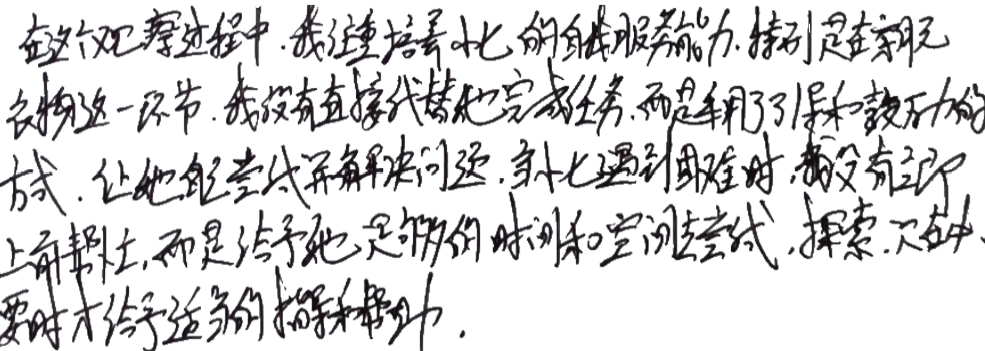 在这个观察过程中，我注重培养小七的自我服务能力。特别是在穿脱
衣物这一环节。我没有直接代替她完成任务，而是采用了引导和鼓励的
方式，让她能尝试并解决问题。当小七遇到困难时，我没有立即
上前帮忙，而是给予她足够的时间和空间去尝试，探索。只在必
要时才给予适当的指导和帮助。